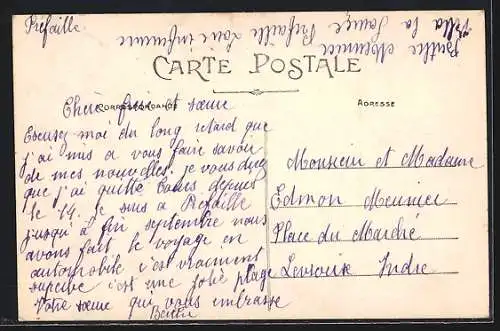 Préfaille
Berthe Meunier Préfaille Loire inférieure
Villa la
CARTE POSTALE
CORRESPONDANCE
ADRESSE
Cher frère et sœur
Excusez moi du long retard que
j'ai mis a vous faire savoir
de mes nouvelles. je vous direz
que j'ai quitté Tours depuis
le 14. Je suis a Prefaille
jusqu'à fin septembre nous
avons fait le voyage en
automobile c'est vraiment
superbe c'est une jolie plage
Votre sœur qui vous embrasse
Berthe
Monsieur et Madame
Edmon Meunier
Place du Marché
Levroux Indre